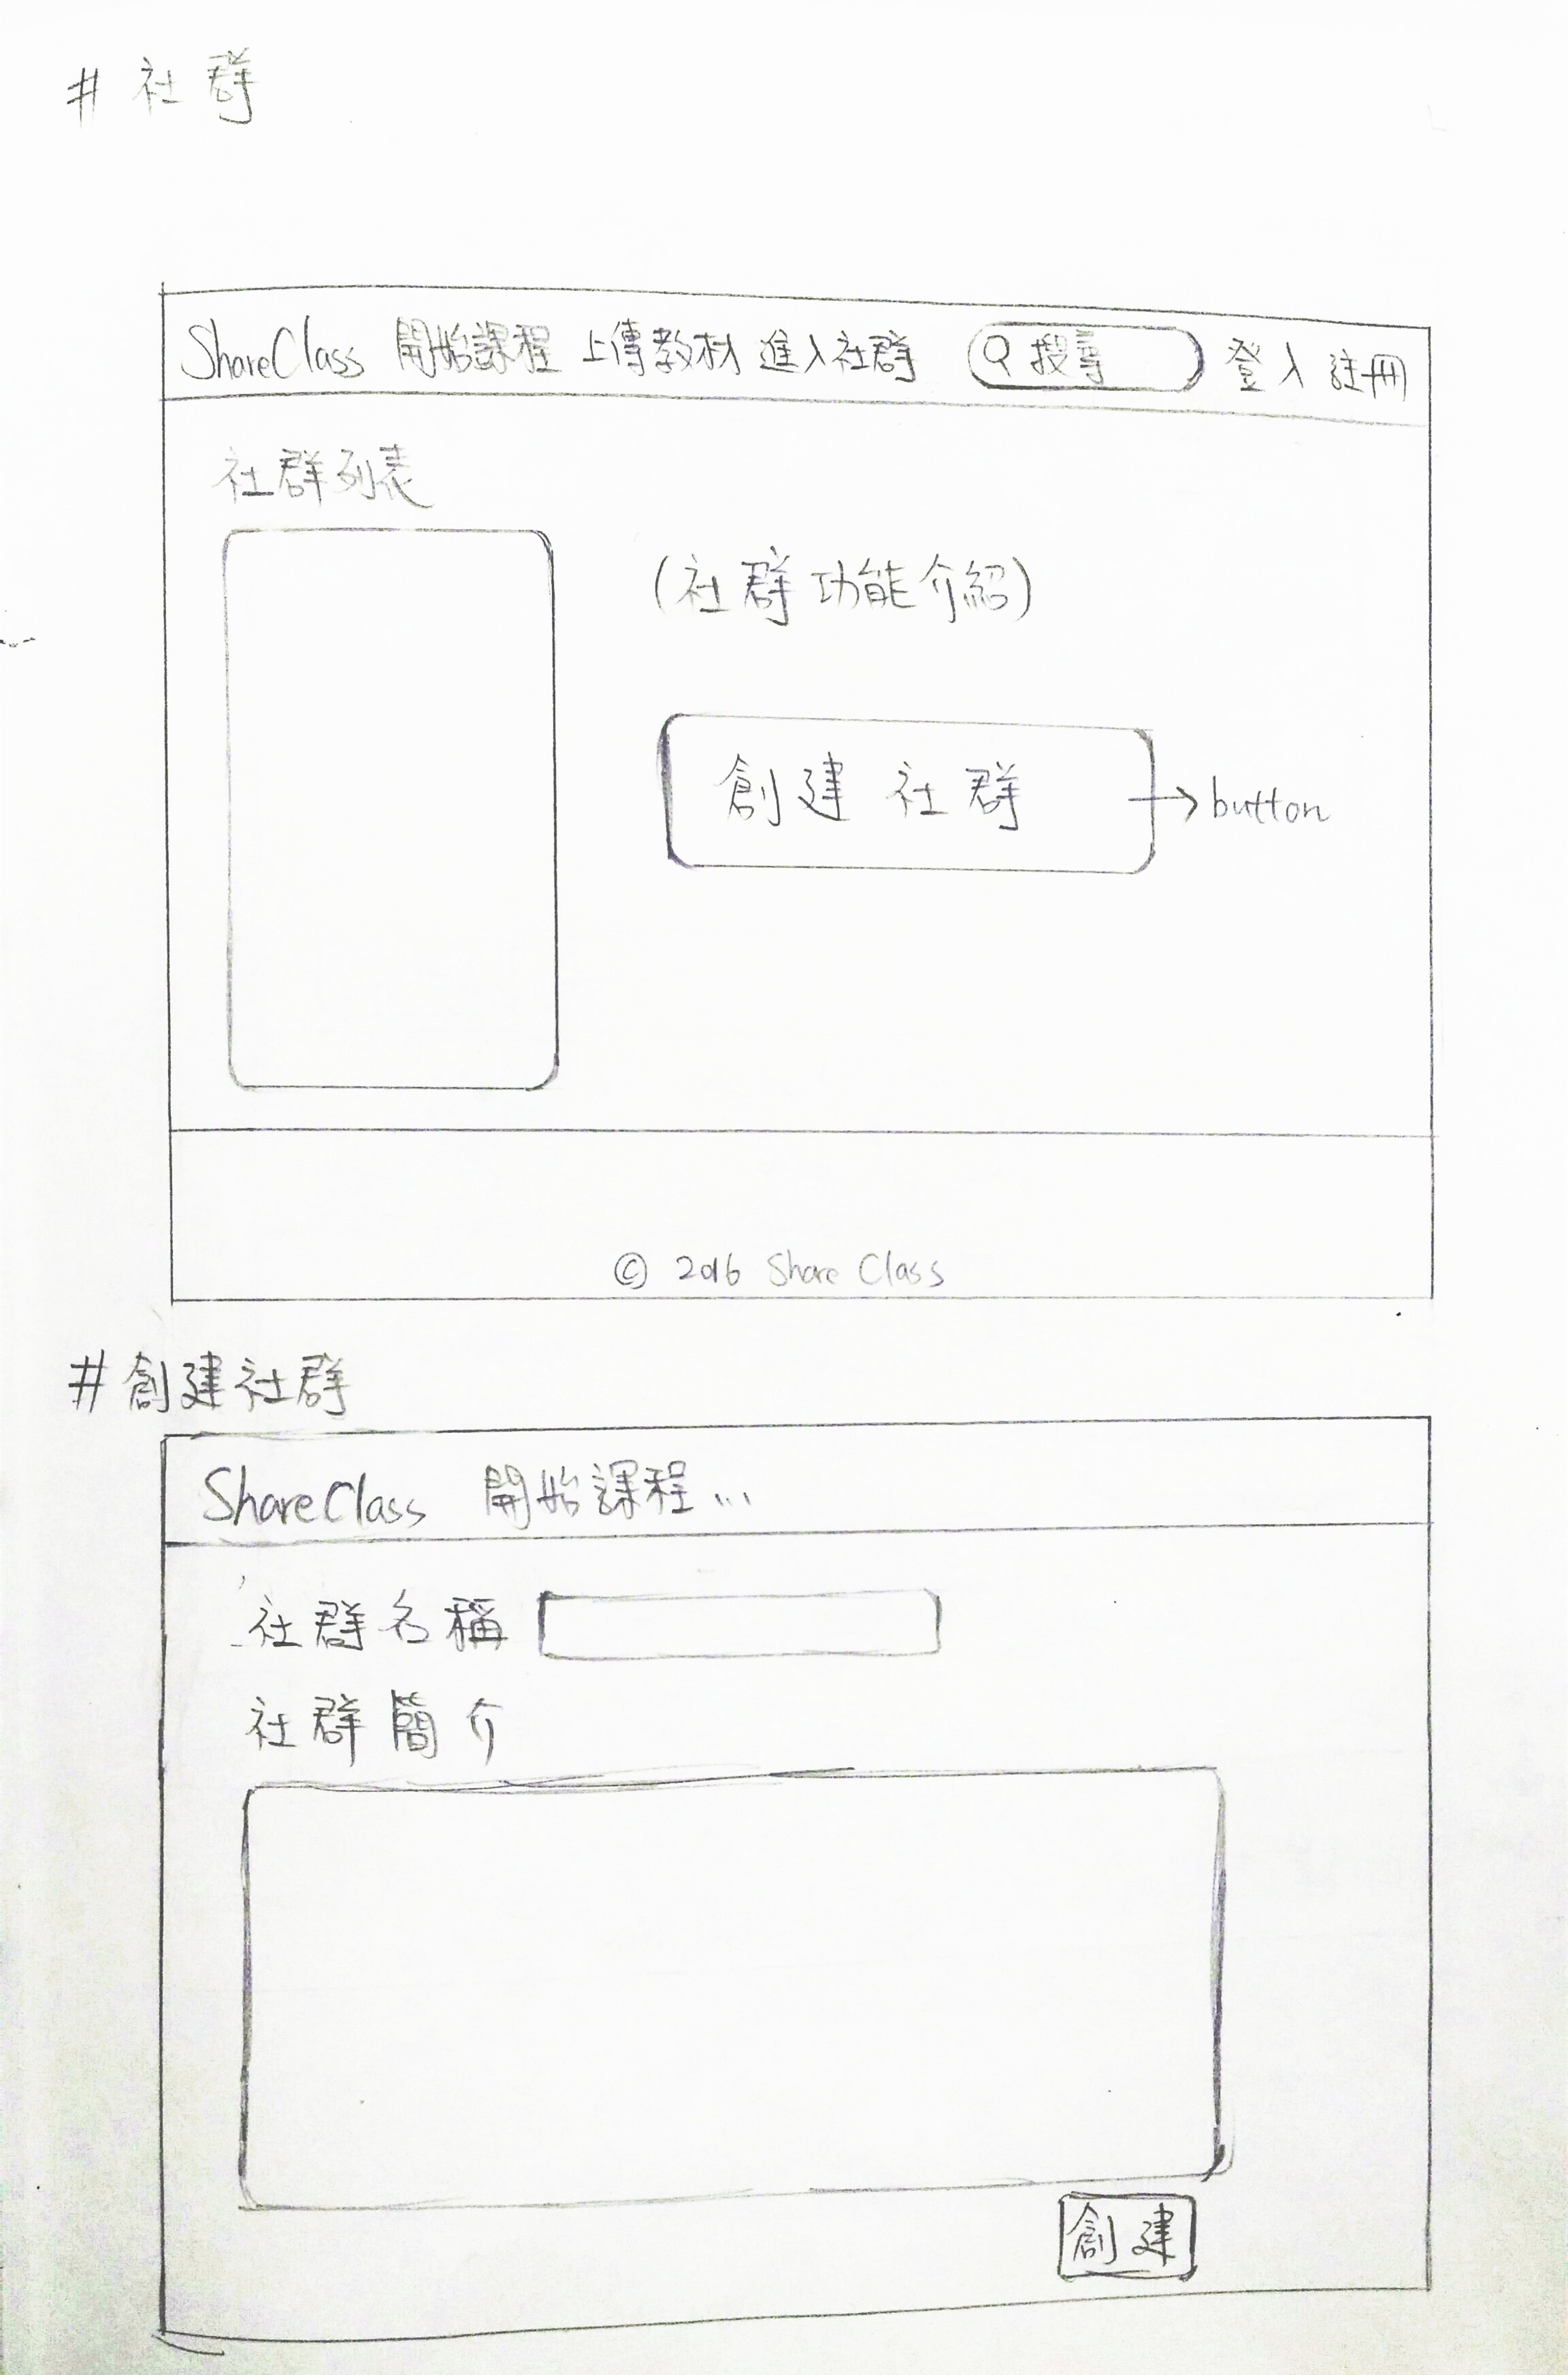 # 社群
ShareClass 開始課程 上傳教材 進入社群 搜尋 登入 註冊
社群列表
(社群功能介紹)
創建社群 → button
© 2016 Share Class
# 創建社群
ShareClass 開始課程...
社群名稱
社群簡介
創建